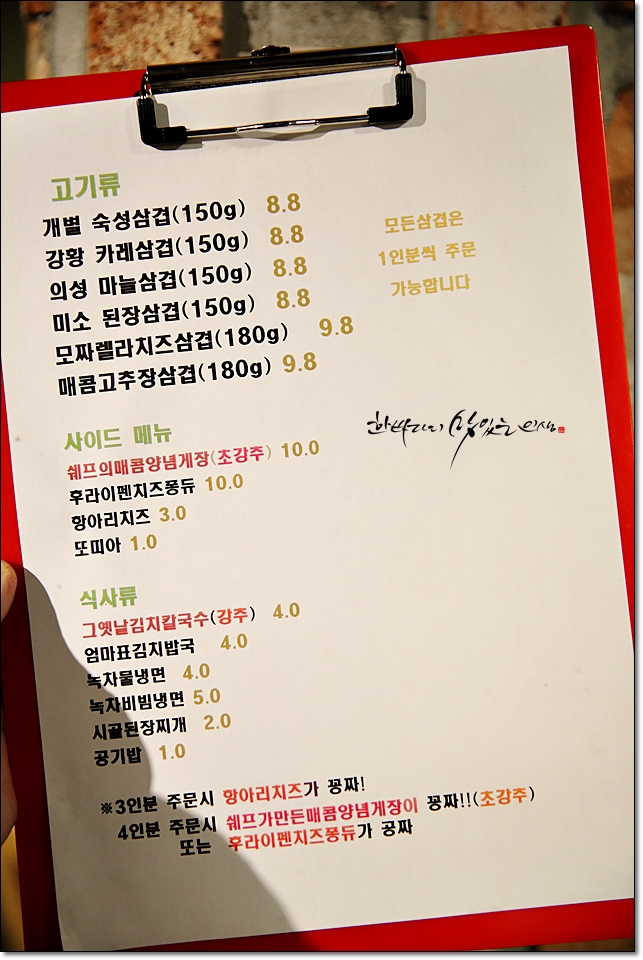 고기류
개별 숙성삼겹(150g) 8.8
강황 카레삼겹(150g) 8.8
의성 마늘삼겹(150g) 8.8
미소 된장삼겹(150g) 8.8
모짜렐라치즈삼겹(180g) 9.8
매콤고추장삼겹(180g) 9.8
모든삼겹은
1인분씩 주문
가능합니다
맛있는 인생
사이드 메뉴
쉐프의매콤양념게장(초강추) 10.0
후라이펜치즈퐁듀 10.0
항아리치즈 3.0
또띠아 1.0
식사류
그옛날김치칼국수(강추) 4.0
엄마표김치밥국 4.0
녹차물냉면 4.0
녹차비빔냉면 5.0
시골된장찌개 2.0
공기밥 1.0
※3인분 주문시 항아리치즈가 꽁짜!
4인분 주문시 쉐프가만든매콤양념게장이 꽁짜!!(초강추)
또는 후라이펜치즈퐁듀가 공짜